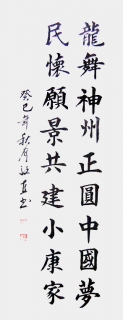 龍舞神州正圓中國夢
民懷願景共建小康家
癸巳年秋月